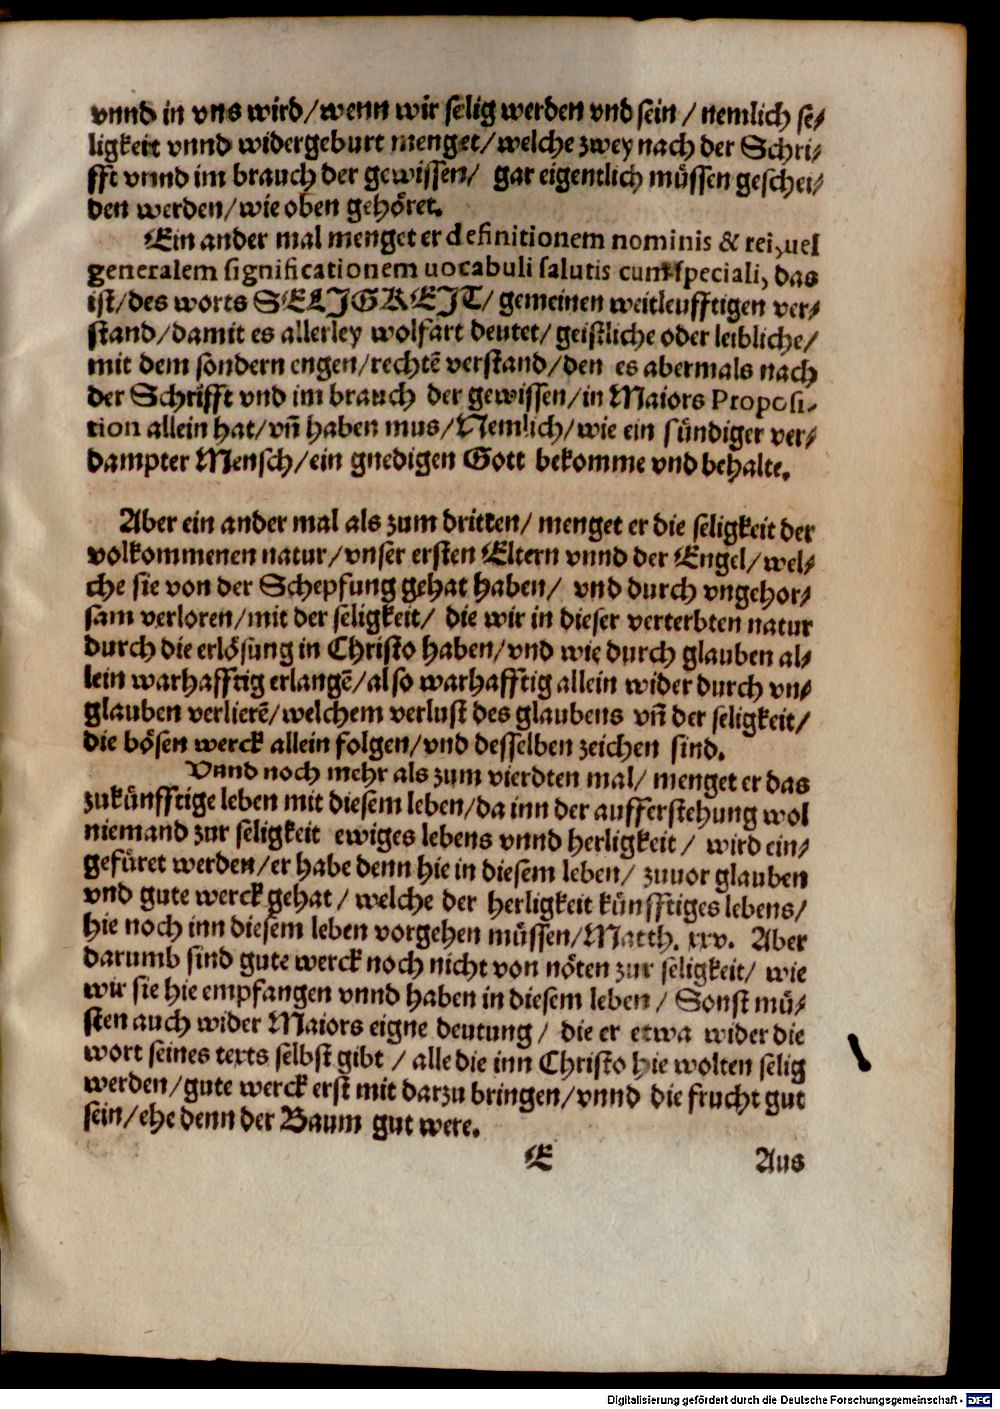 vnnd in vns wird/wenn wir selig werden vnd sein/ nemlich se⸗
ligkeit vnnd widergeburt menget/welche zwey nach der Schri⸗
fft vnnd im brauch der gewissen/ gar eigentlich müssen geschei⸗
den werden/wie oben gehöret.
Ein ander mal menget er definitionem nominis & rei, uel
generalem significationem uocabuli salutis cum speciali, das
ist/des worts SELJGKEJT/ gemeinen weitleufftigen ver⸗
stand/damit es allerley wolfart deutet/geistliche oder leibliche/
mit dem sondern engen/rechtē verstand/den es abermals nach
der Schrifft vnd im brauch der gewissen/in Maiors Proposi⸗
tion allein hat/vñ haben mus/Nemlich/wie ein sündiger ver⸗
dampter Mensch/ein gnedigen Gott bekomme vnd behalte.
Aber ein ander mal als zum dritten/ menget er die seligkeit der
volkommenen natur/vnser ersten Eltern vnnd der Engel/wel⸗
che sie von der Schepfung gehat haben/ vnd durch vngehor⸗
sam verloren/mit der seligkeit/ die wir in dieser verterbten natur
durch die erlösung in Christo haben/vnd wie durch glauben al⸗
lein warhafftig erlangē/also warhafftig allein wider durch vn⸗
glauben verlierē/welchem verlust des glaubens vñ der seligkeit/
die bösen werck allein folgen/vnd desselben zeichen sind.
Vnnd noch mehr als zum vierdten mal/ menget er das
zukünfftige leben mit diesem leben/da inn der aufferstehung wol
niemand zur seligkeit ewiges lebens vnnd herligkeit/ wird ein⸗
gefüret werden/er habe denn hie in diesem leben/ zuuor glauben
vnd gute werck gehat/ welche der herligkeit künfftiges lebens/
hie noch inn diesem leben vorgehen müssen/Matth. xxv. Aber
darumb sind gute werck noch nicht von nöten zur seligkeit/ wie
wir sie hie empfangen vnnd haben in diesem leben/ Sonst mü⸗
sten auch wider Maiors eigne deutung/ die er etwa wider die
wort seines texts selbst gibt/ alle die inn Christo hie wolten selig
werden/gute werck erst mit darzu bringen/vnnd die frucht gut
sein/ehe denn der Baum gut were.
E Aus
Digitalisierung gefördert durch die Deutsche Forschungsgemeinschaft - DFG